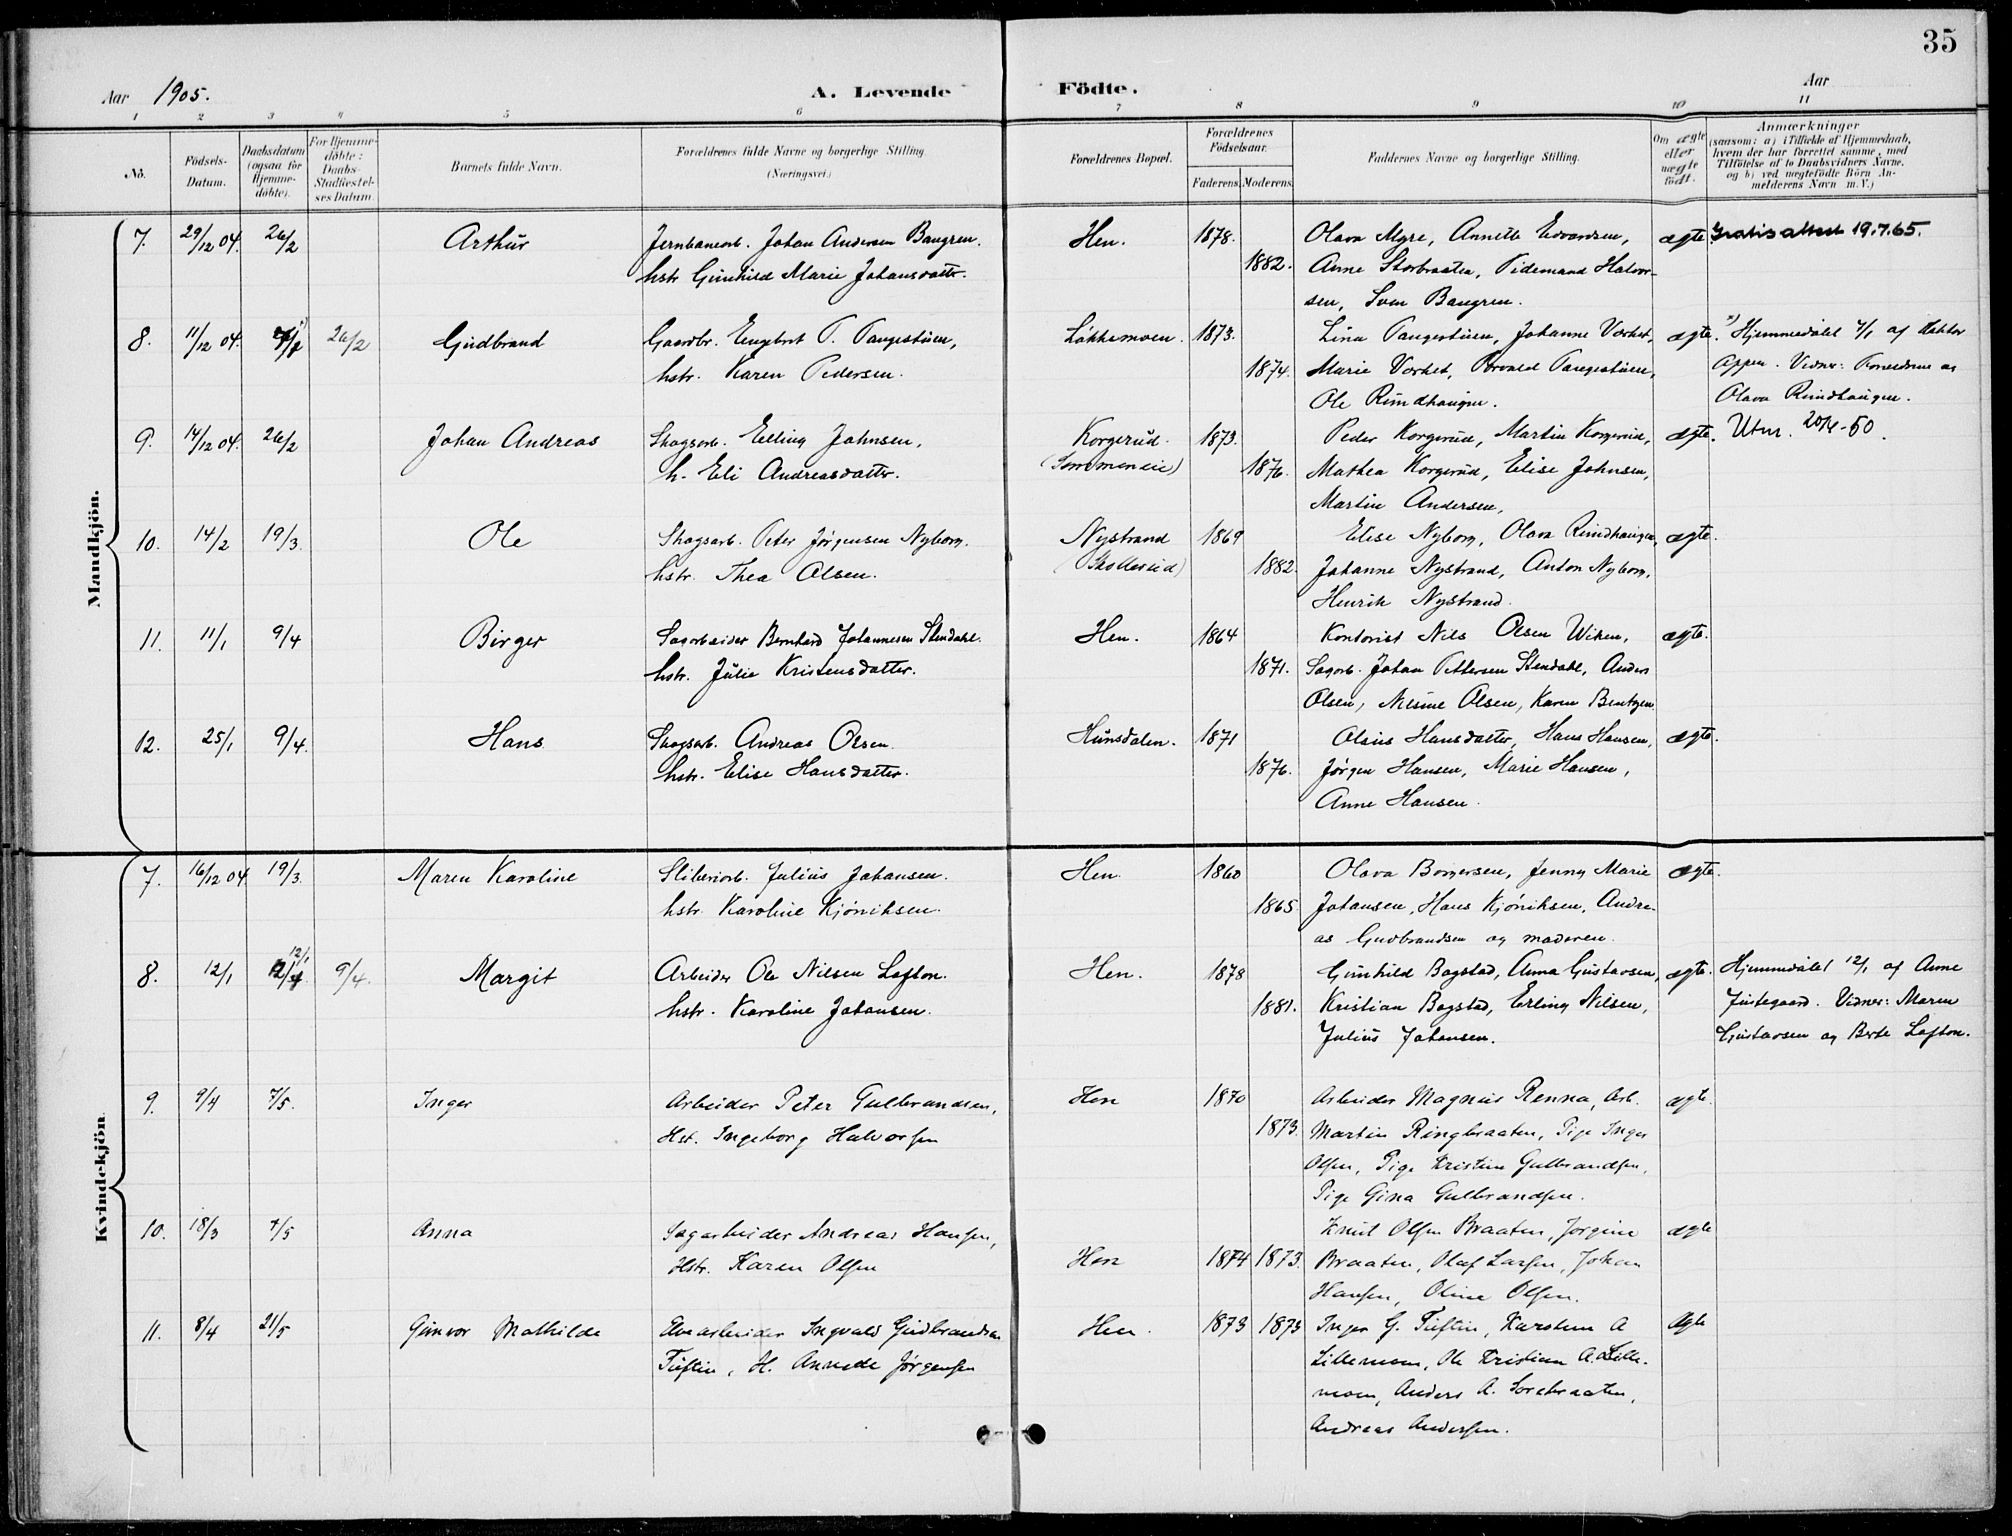 35
Aar 1905.
A. Levende Födte.
Aar
1 2 3 4 5 6 7 8 9 10 11
No.
Födsels-Datum.
Daabsdatum (ogsaa for Hjemmedöbte).
For Hjemmedöbte: Daabs-Stadfæstelses Datum.
Barnets fulde Navn.
Forældrenes fulde Navne og borgerlige Stilling. (Næringsvei.)
Forældrenes Bopæl.
Forældrenes Födselsaar.
Faderens. Moderens.
Faddernes Navne og borgerlige Stilling.
Om ægte eller uægte födt.
Anmærkninger
(saasom: a) i Tilfælde af Hjemmedaab, hvem der har forrettet samme, med Tilföielse af to Daabsvidners Navne, og b) ved uægtefödte Börn Anmelderens Navn m. V.)
Mandkjön.
7. 29/12 04. 26/2 Arthur Jernbanearb. Johan Andersen Bangren. Hen. 1878. Olava Myre, Annette Edvardsen, ægte Gratis attest 19.7.65.
hstr Gunhild Marie Johansdatter. 1882. Anne Storbraaten, Tidemand Halvor-
sen, Sven Bangren.
8. 11/12 04. 26/2 Gudbrand Gaardbr. Engebret P. Tangestuen, Løkkemoen. 1873. Lina Tangestuen, Johanne Værket, ægte. x) Hjemmedøbt 7/1 af Doktor
hstr. Karen Pedersen. 1874. Marie Værket, Torvald Tangestuen, Appen. Vidner: Forældrene og
Ole Rundhaugen. Olava Rundhaugen.
9. 14/12 04. 26/2 Johan Andreas Skogsarb. Erling Johnsen, Korgerud. 1873. Peder Korgerud, Martin Korgerud, ægte. Utm. 20/4-50.
h. Eli Andreasdatter. (Sommeneie) 1876. Mathea Korgerud, Elise Johnsen,
Martin Andersen,
10. 14/2 19/3. Ole Skogsarb. Peter Jørgensen Nyborg. Nystrand 1869 Elise Nyborg, Olava Rundhaugen, ægte.
hstr. Thea Olsen. (Skollerud) 1882. Johanne Nystrand, Anton Nyborg,
Henrik Nystrand.
11. 11/1 9/4 Birger Sagarbeider Bernhard Johannesen Stendahl. Hen. 1864 Kontorist Nils Olsen Wiken, ægte.
hstr. Julie Kristensdatter. 1871. Sagarb. Johan Pettersen Stendahl, Anders
Olsen, Nesine Olsen, Karen Bentzen
12. 25/1 9/4. Hans Skogsarb. Andreas Olsen Hunsdalen. 1871 Olaus Hansdatter, Hans Hansen, ægte.
hstr. Elise Hansdatter. 1876. Jørgen Hansen, Marie Hansen,
Anne Hansen.
Kvindekjön
7. 16/12 04 19/3. Maren Karoline Sliberiarb. Julius Johansen. Hen. 1860 Olava Borgersen, Jenny Marie ægte.
hstr. Karoline Kjøniksen. 1865. Johansen, Hans Kjøniksen, Andre-
as Gudbrandsen og moderen.
8. 12/1 12/1 9/4. Margit Arbeider Ole Nilsen Lofton. Hen. 1878 Gunhild Bagstad, Anna Gustavsen, ægte. Hjemmedøbt 12/1 af Anne
hstr. Karoline Johansen. 1881. Kristian Bagstad, Erling Nilsen, Justegaard. Vidner: Maren
Julius Johansen. Gustavsen og Berte Lofton.
9. 9/4 7/5. Inger Arbeider Peter Gulbrandsen, Hen 1870 Arbeider Magnus Renna, Arb. ægte.
Hst. Ingeborg Halvorsen 1873. Martin Ringbraaten, Pige Inger
Olsen, Pige Kristine Gulbrandsen,
Pige Gina Gulbrandsen.
10. 18/3 7/5 Anna Sagarbeider Andreas Hansen, Knut Olsen Braaten, Jørgine ægte
Hstr. Karen Olsen Hen 1874 1873. Braaten, Olaf Larsen, Johan
Hansen, Oline Olsen.
11. 8/4 21/5 Gunvor Mathilde Elvearbeider Ingvald Gudbrandsen Hen. 1873 1873 Inger G. Tuftin, Karsten A Ægte
Tuftin, H. Annede Jørgensen Lillemoen, Ole Kristian A. Lille-
moen, Anders A. Sorebraaten,
Andreas Andersen.